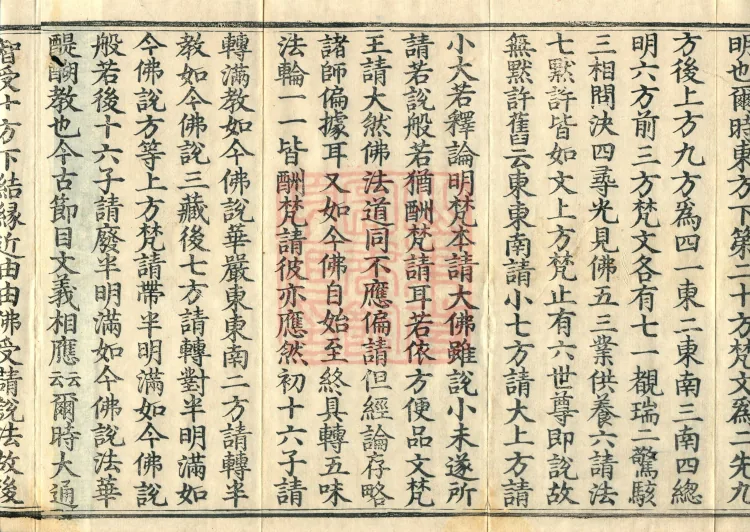 明也爾時東方下第二十方梵文爲二先九
方後上方九方爲四一東二東南三南四總
明六方前三方梵文各有七一覩瑞二驚駭
三相問決四尋光見佛五三業供養六請法
七默許皆如文上方梵止有六世尊即說故
無默許舊云東東南請小七方請大上方請
小大若釋論明梵本請大佛雖說小未遂所
請若說般若猶酬梵請耳若依方便品文梵
王請大然佛法道同不應偏請但經論存略
諸師偏據耳又如今佛自始至終具轉五味
法輪一一皆酬梵請彼亦應然初十六子請
轉滿教如今佛說華嚴東東南二方請轉半
教如今佛說三藏後七方請轉對半明滿如
今佛說方等上方梵請帶半明滿如今佛說
般若後十六子請廢半明滿如今佛說法華
醍醐教也今古節目文義相應云云爾時大通
智受十方下結緣近由由佛受請說法故後